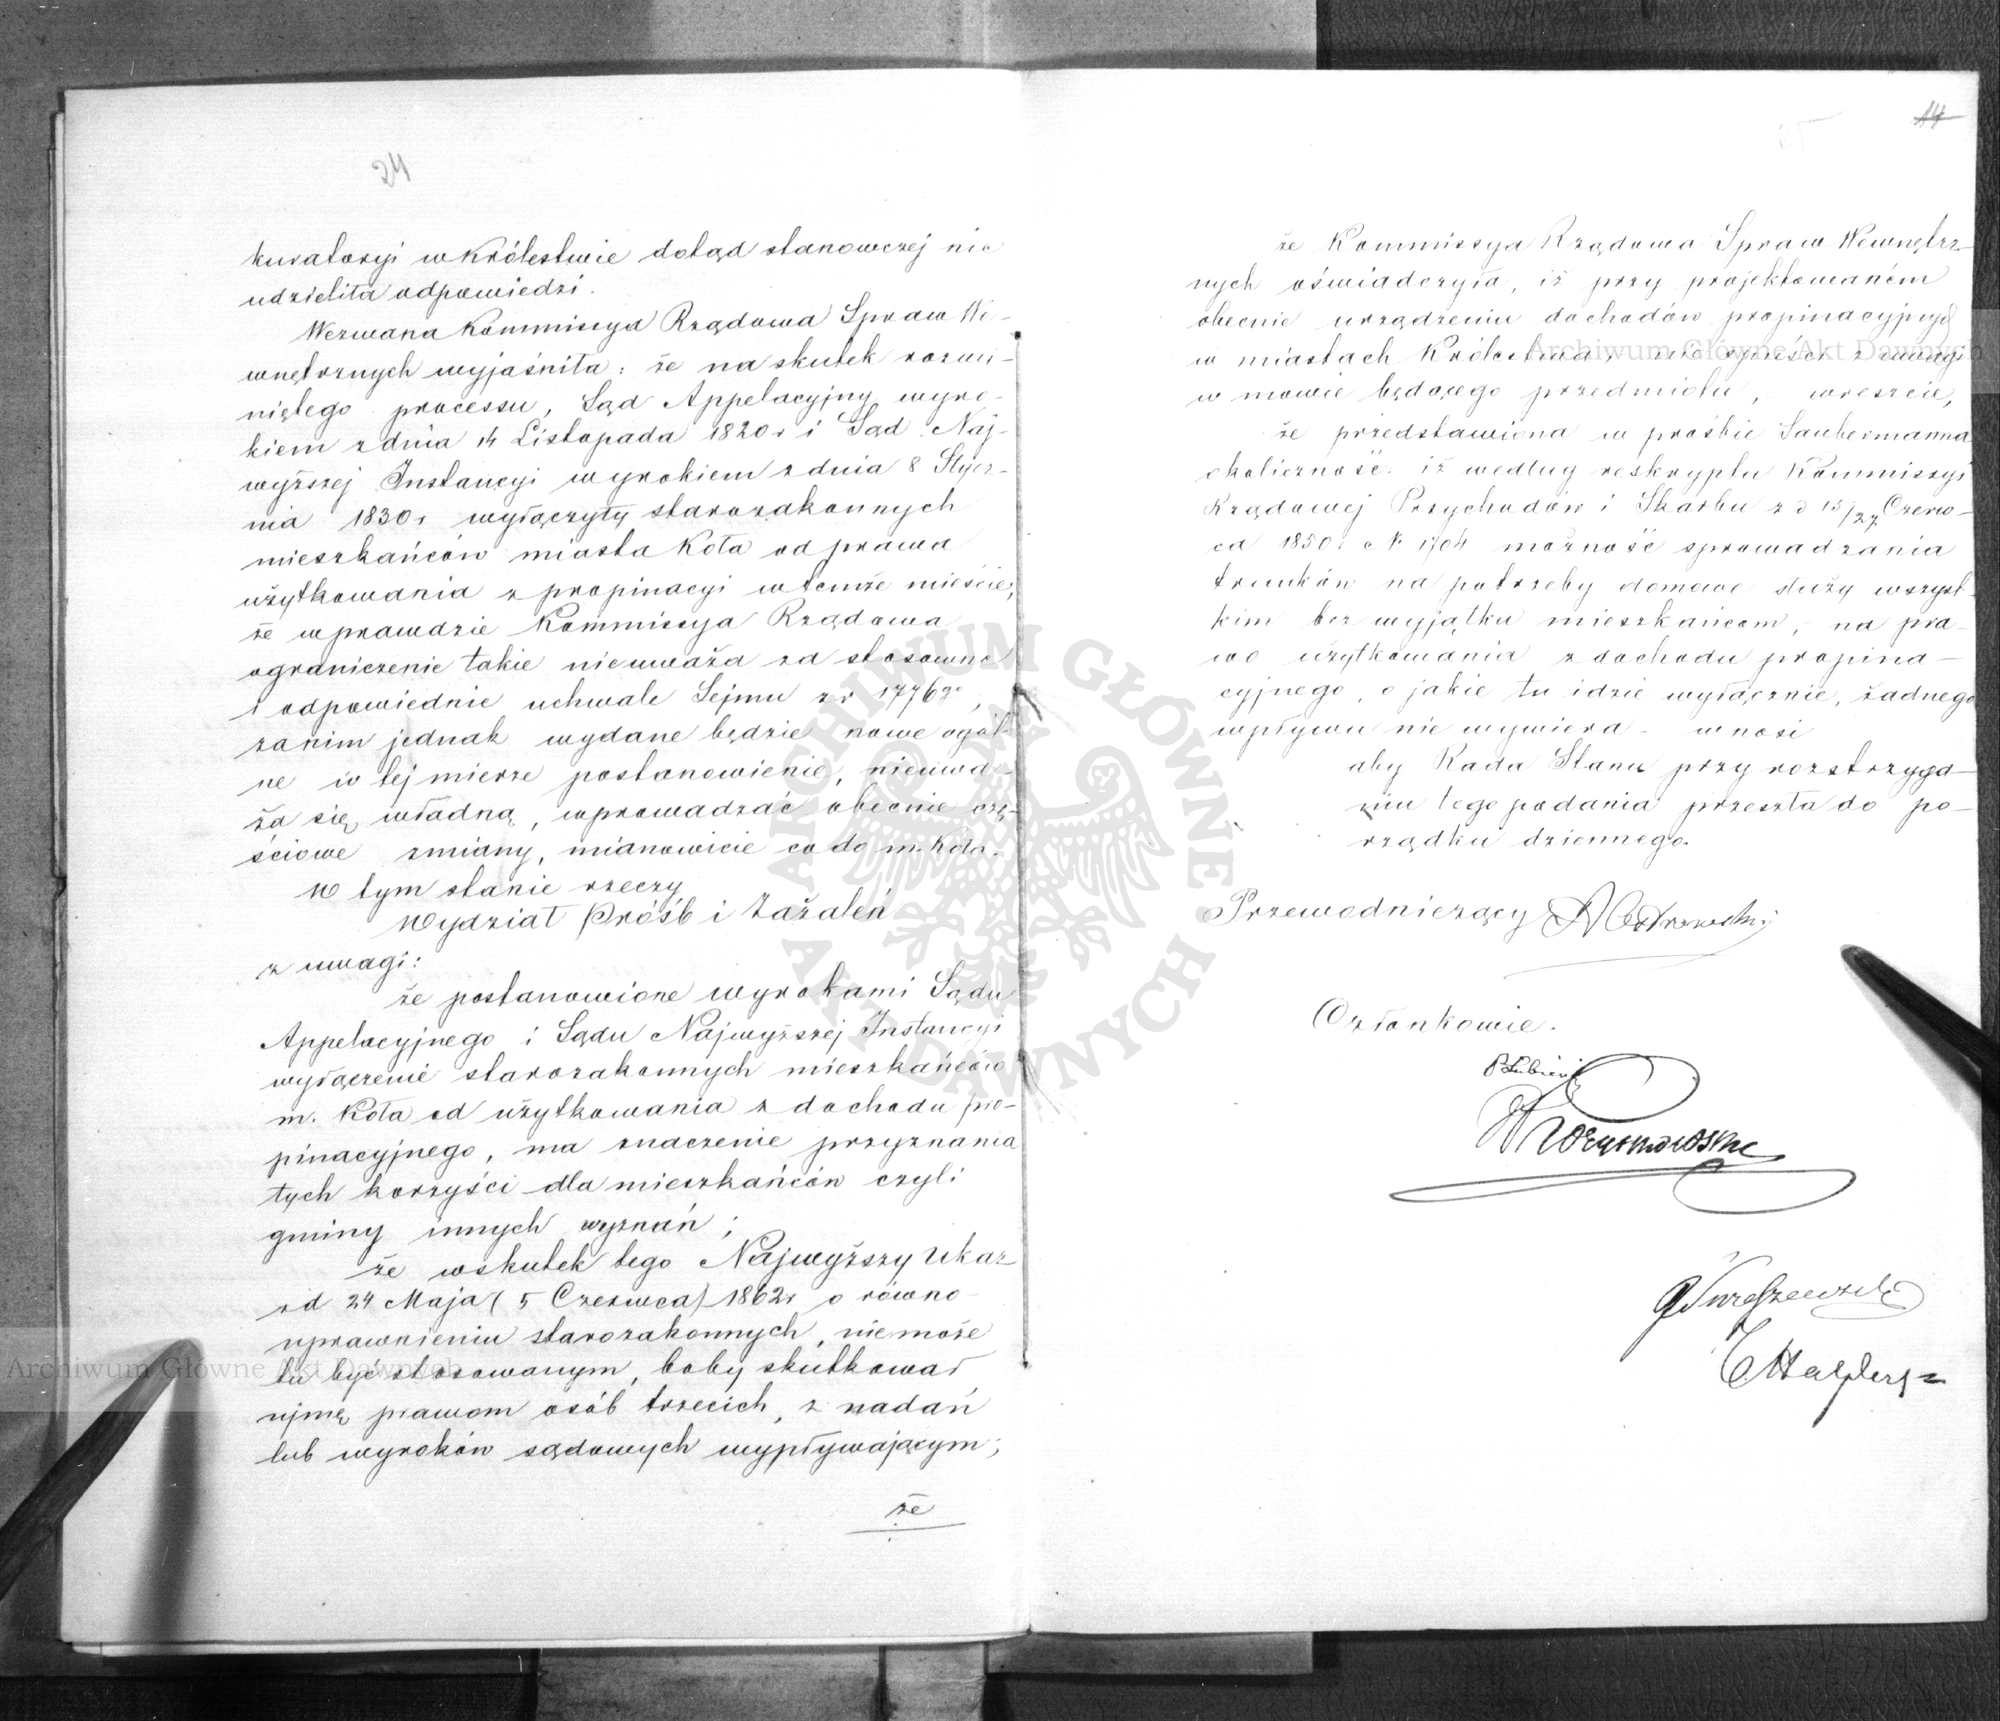 24
kuratoryi w Królestwie dotąd stanowczej nie
udzieliła odpowiedzi.
Wezwana Kommissya Rządowa Spraw We-
wnętrznych wyjaśniła: że na skutek rozwi-
niętego processu, Sąd Appelacyjny wyro-
kiem z dnia 14 Listopada 1820 r i Sąd Naj-
wyższej Instancyi wyrokiem z dnia 8 Stycz-
nia 1830 r wyłączyły starozakonnych
mieszkańców miasta Koła od prawa
użytkowania z propinacyi w temże mieście;
że wprawdzie Kommissya Rządowa
ograniczenie takie nieuważa za stosowne
i odpowiednie uchwale Sejmu z r 1776go;
zanim jednak wydane będzie nowe ogól-
ne w tej mierze postanowienie, nieuwa-
ża się władną, wprowadzać obecnie czę-
ściowe zmiany, mianowicie co do m. Koła.
W tym stanie rzeczy
Wydział Próśb i Zażaleń
z uwagi:
że postanowione wyrokami Sądu
Appelacyjnego i Sądu Najwyższej Instancyi
wyłączenie starozakonnych mieszkańców
m. Koła od użytkowania z dochodu pro-
pinacyjnego, ma znaczenie przyznania
tych korzyści dla mieszkańców czyli
gminy innych wyznań;
że wskutek tego Najwyższy Ukaz
zd 24 Maja (5 Czerwca) 1862 r o równo-
uprawnieniu starozakonnych, niemoże
tu być stosowanym, boby skutkował
ujmę prawom osób trzecich, z nadań
lub wyroków sądowych wypływającym;
że
14
że Kommissya Rządowa Spraw Wewnętrz-
nych oświadczyła, iż przy projektowaném
obecnie urządzeniu dochodów propinacyjnych
w miastach Królestwa, nie spuści z uwagi
w mowie będącego przedmiotu, - wreszcie,
że przedstawiona w prośbie Saubermanna
okoliczność: iż według reskryptu Kommissyi
Rządowej Przychodów i Skarbu z d 15/27 Czerw-
ca 1850 r N 1704 możność sprowadzania
trunków na potrzeby domowe służy wszyst-
kim bez wyjątku mieszkańcom, - na pra-
wo użytkowania z dochodu propina-
cyjnego, o jakie tu idzie wyłącznie, żadnego
wpływu nie wywiera - wnosi
aby Rada Stanu przy rozstrzyga-
niu tego podania przeszła do po-
rządku dziennego.
Przewodniczący A Ostrowski
Członkowie.
Archiwum Główne Akt Dawnych
Archiwum Główne Akt Dawnych
ARCHIWUM GŁÓWNE AKT DAWNYCH